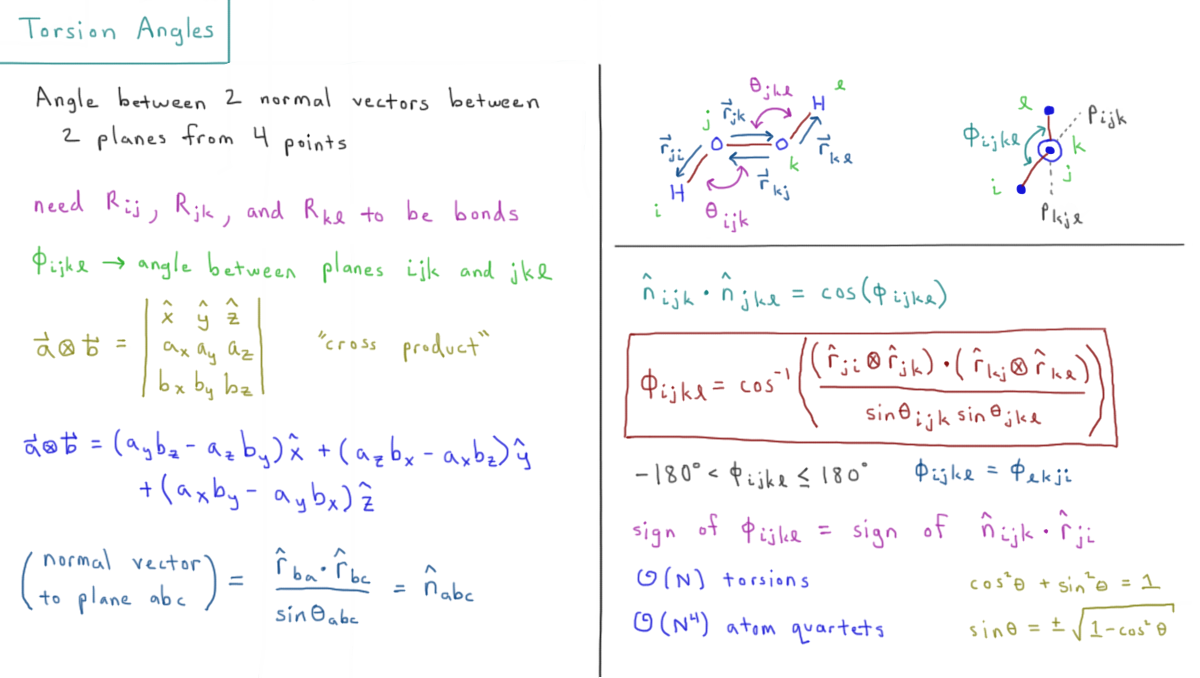 Torsion Angles
Angle between 2 normal vectors between
2 planes from 4 points
need Rij, Rjk, and Rkl to be bonds
ϕijkl → angle between planes ijk and jkl
a⃗ ⊗ b⃗ = | x̂ ŷ ẑ |
| ax ay az |
| bx by bz |
"cross product"
a⃗ ⊗ b⃗ = (aybz - azby)x̂ + (azbx - axbz)ŷ
+ (axby - aybx)ẑ
(normal vector to plane abc) = r̂ba · r̂bc / sinθabc = n̂abc
θjkl
l
H
j
r⃗jk
r⃗ji
O
O
r⃗kl
k
H
r⃗kj
i
θijk
l
Pijk
ϕijkl
k
j
i
Pkjl
n̂ijk · n̂jkl = cos(ϕijkl)
ϕijkl = cos⁻¹((r̂ji ⊗ r̂jk) · (r̂kj ⊗ r̂kl) / sinθijk sinθjkl)
-180° < ϕijkl ≤ 180°
ϕijkl = ϕlkji
sign of ϕijkl = sign of n̂ijk · r̂ji
O(N) torsions
cos²θ + sin²θ = 1
O(N⁴) atom quartets
sinθ = ±√1-cos²θ